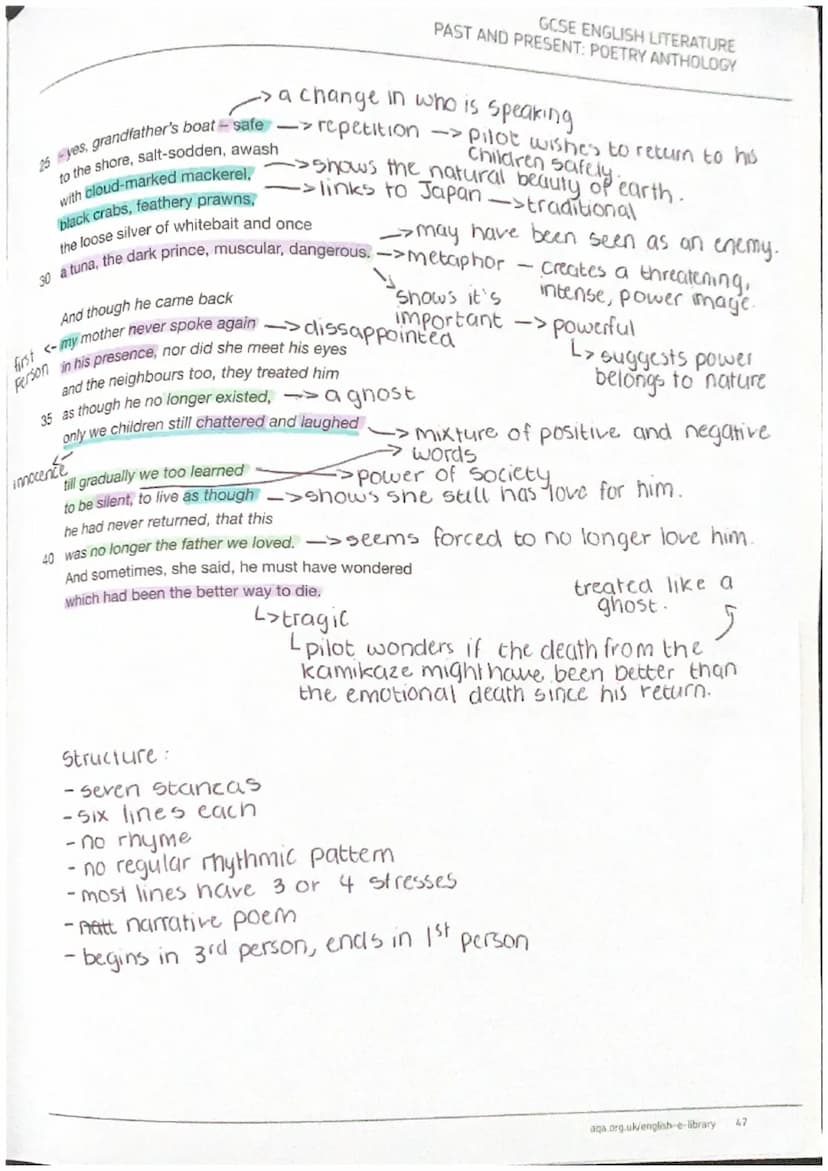 GCSE ENGLISH LITERATURE
PAST AND PRESENT: POETRY ANTHOLOGY
-> a change in who is speaking
25 – yes, grandfather's boat – safe -> repetition -> pilot wishes to return to his
children safely.
to the shore, salt-sodden, awash
with cloud-marked mackerel, -> shows the natural beauty of earth.
black crabs, feathery prawns, -> links to Japan -> traditional
the loose silver of whitebait and once -> may have been seen as an enemy.
30 a tuna, the dark prince, muscular, dangerous. -> metaphor – creates a threatening,
intense, power image.
shows it's
important -> powerful
-> suggests power
belongs to nature
And though he came back
first person <- my mother never spoke again -> dissappointed
in his presence, nor did she meet his eyes
and the neighbours too, they treated him
35 as though he no longer existed, -> a ghost
only we children still chattered and laughed -> mixture of positive and negative
-> words
innocence
till gradually we too learned -> power of society
to be silent, to live as though -> shows she still has love for him.
he had never returned, that this
40 was no longer the father we loved. -> seems forced to no longer love him.
And sometimes, she said, he must have wondered
which had been the better way to die.
treated like a
ghost.
-> tragic
pilot wonders if the death from the
kamikaze might have been better than
the emotional death since his return.
Structure:
- seven stancas
- six lines each
- no rhyme
- no regular rhythmic pattern
- most lines have 3 or 4 stresses
- narrative poem
- begins in 3rd person, ends in 1st person
aqa.org.uk/english-e-library 47